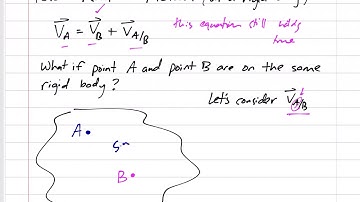 V_A = V_B + V_A/B
this equation still holds true
What if point A and point B are on the same
rigid body?
Let's consider V_A/B
A
B